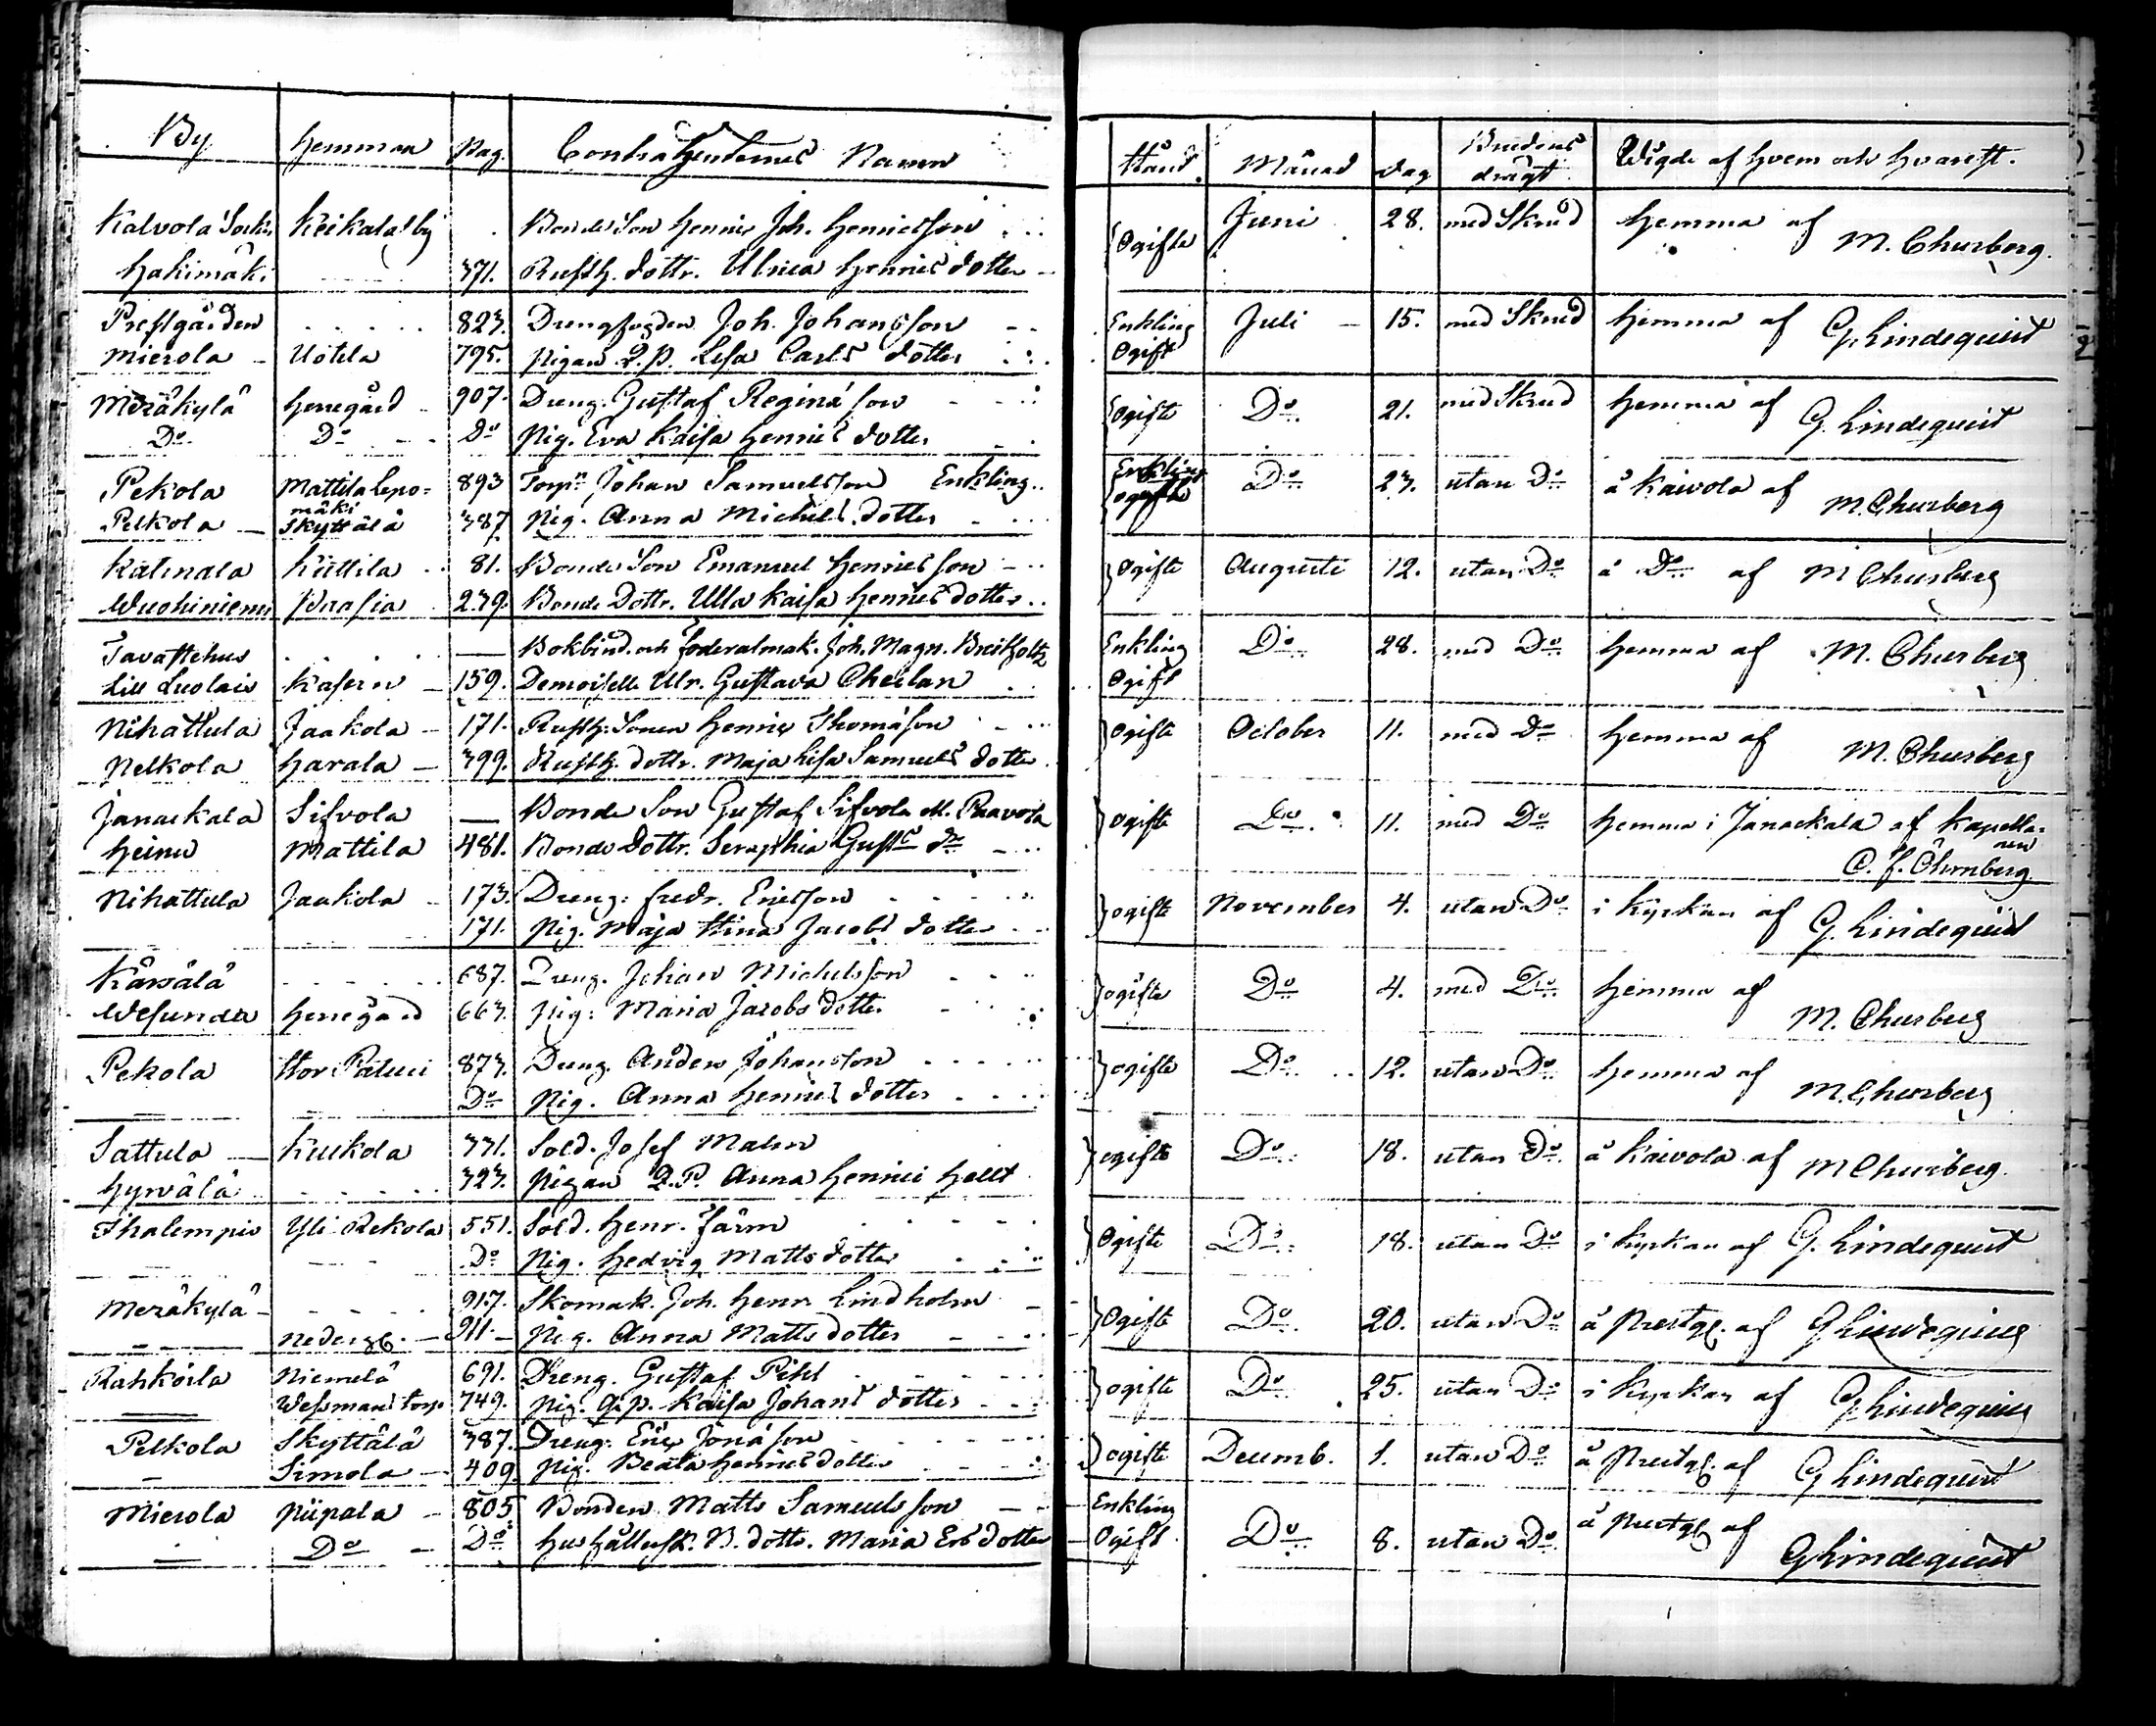 By Hemman Pag. Contrahenternes Namn Stånd. Månad Dag Brudens drägt Wigde af hvem och hvarest.
Kalvola Sock. Keikala by Bonde Son Henric Joh. Henricsson Ogifte Juni 28. med Skrud hemma af M. Churberg.
Hakimäki 371. Rusth. dottr. Ulrica Henrics dotter
Prestgården 823. Drengfogden Joh. Johansson Enkling Juli 15. med Skrud hemma af G. Lindequist
Mierola Uotila 795. Pigan Q.p. Lisa Carls dotter Ogift
Meräkylä Herregård 907. Dreng. Gustaf Reginä son Ogifte Do 21. med Skrud hemma af G. Lindequist
Do Do Do Pig. Eva Kaisa Henrics dotter
Pekola Mattila Lepomäki 893 Torp. Johan Samuelsson Enkling Enkling Do 23. utan Do å Kaivola af M. Churberg
Pelkola Skyttälä 387 Pig. Anna Michels dotter ogifte
Katinala Küttila 81. Bonde Son Emanuel Henricsson Ogifte Augusti 12. utan Do å Do af M Churberg
Wuohiniemi 239. Bonde Dottr. Ulla Kaisa Henrics dotter
Tavastehus — Bokbind. och foderalmak. Joh. Magn. Breitholtz Enkling Do 28. med Do hemma af M. Churberg
Lill Luolais Kasern 159. Demoiselle Ulr. Gustava Ogift
Nihattula Jaakola 171. Rusth. Sonen Henric Thomasson Ogifte October 11. med Do hemma af M. Churberg
Pelkola Harala 399. Rusth. dottr. Maja Lisa Samuels dotter
Janackala Sifvola — Bonde Son Gustaf Sifvola Paavola Ogifte Do 11. med Do hemma i Janackala af Kapellanen C. f. Öhrnberg
Heinu Mattila 481. Bonde Dottr. Seraphia Gusts dr
Nihattula Jaakola 173. Dreng. fredr. Ericsson ogifte November 4. utan Do i Kyrkan af G. Lindequist
171. Pig. Maja Stina Jacobs dotter
687. Dreng. Johan Michelsson ogifte Do 4. med Do hemma af M. Churberg
Wesunda Herregård 663. Pig. Maria Jacobs dotter
Pekola Stor Paturi 873. Dreng. Anders Johansson ogifte Do 12. utan Do hemma af M. Churberg
— Do Pig. Anna Henrics dotter
Sattula Kuckola 331. Sold. Josef Malm ogifte Do 18. utan Do å Kaivola af M Churberg
Hyrvälä 323. Pigan Q.P. Anna Henrici Hellt
Ihalempis Yli Rekola 551. Sold. Henr. Färm Ogifte Do 18. utan Do i Kyrkan af G. Lindequist
Do Pig. Hedvig Matts dotter
Meräkylä 917. Skomak. Joh. Henr. Lindholm Ogifte Do 20. utan Do å Prestg. af G Lindequist
— Nederg. 911. Pig. Anna Matts dotter
Rahkoila Niemelä 691. Dreng. Gustaf Pihl ogifte Do 25. utan Do i Kyrkan af G Lindequist
— Wessmans torp 749. Pig. q.p. Kaisa Johans dotter
Pelkola Skyttälä 387. Dreng. Eric Jonä son ogifte Decemb. 1. utan Do å Prestg. af G Lindequist
— Simola 409 Pig. Beata Henrics dotter
Mierola Piipala 805 Bonden Matts Samuelsson Enkling Do 8. utan Do å Prestg. af G Lindequist
— Do Do Hushållersk. B. dottr. Maria Ers dotter Ogift